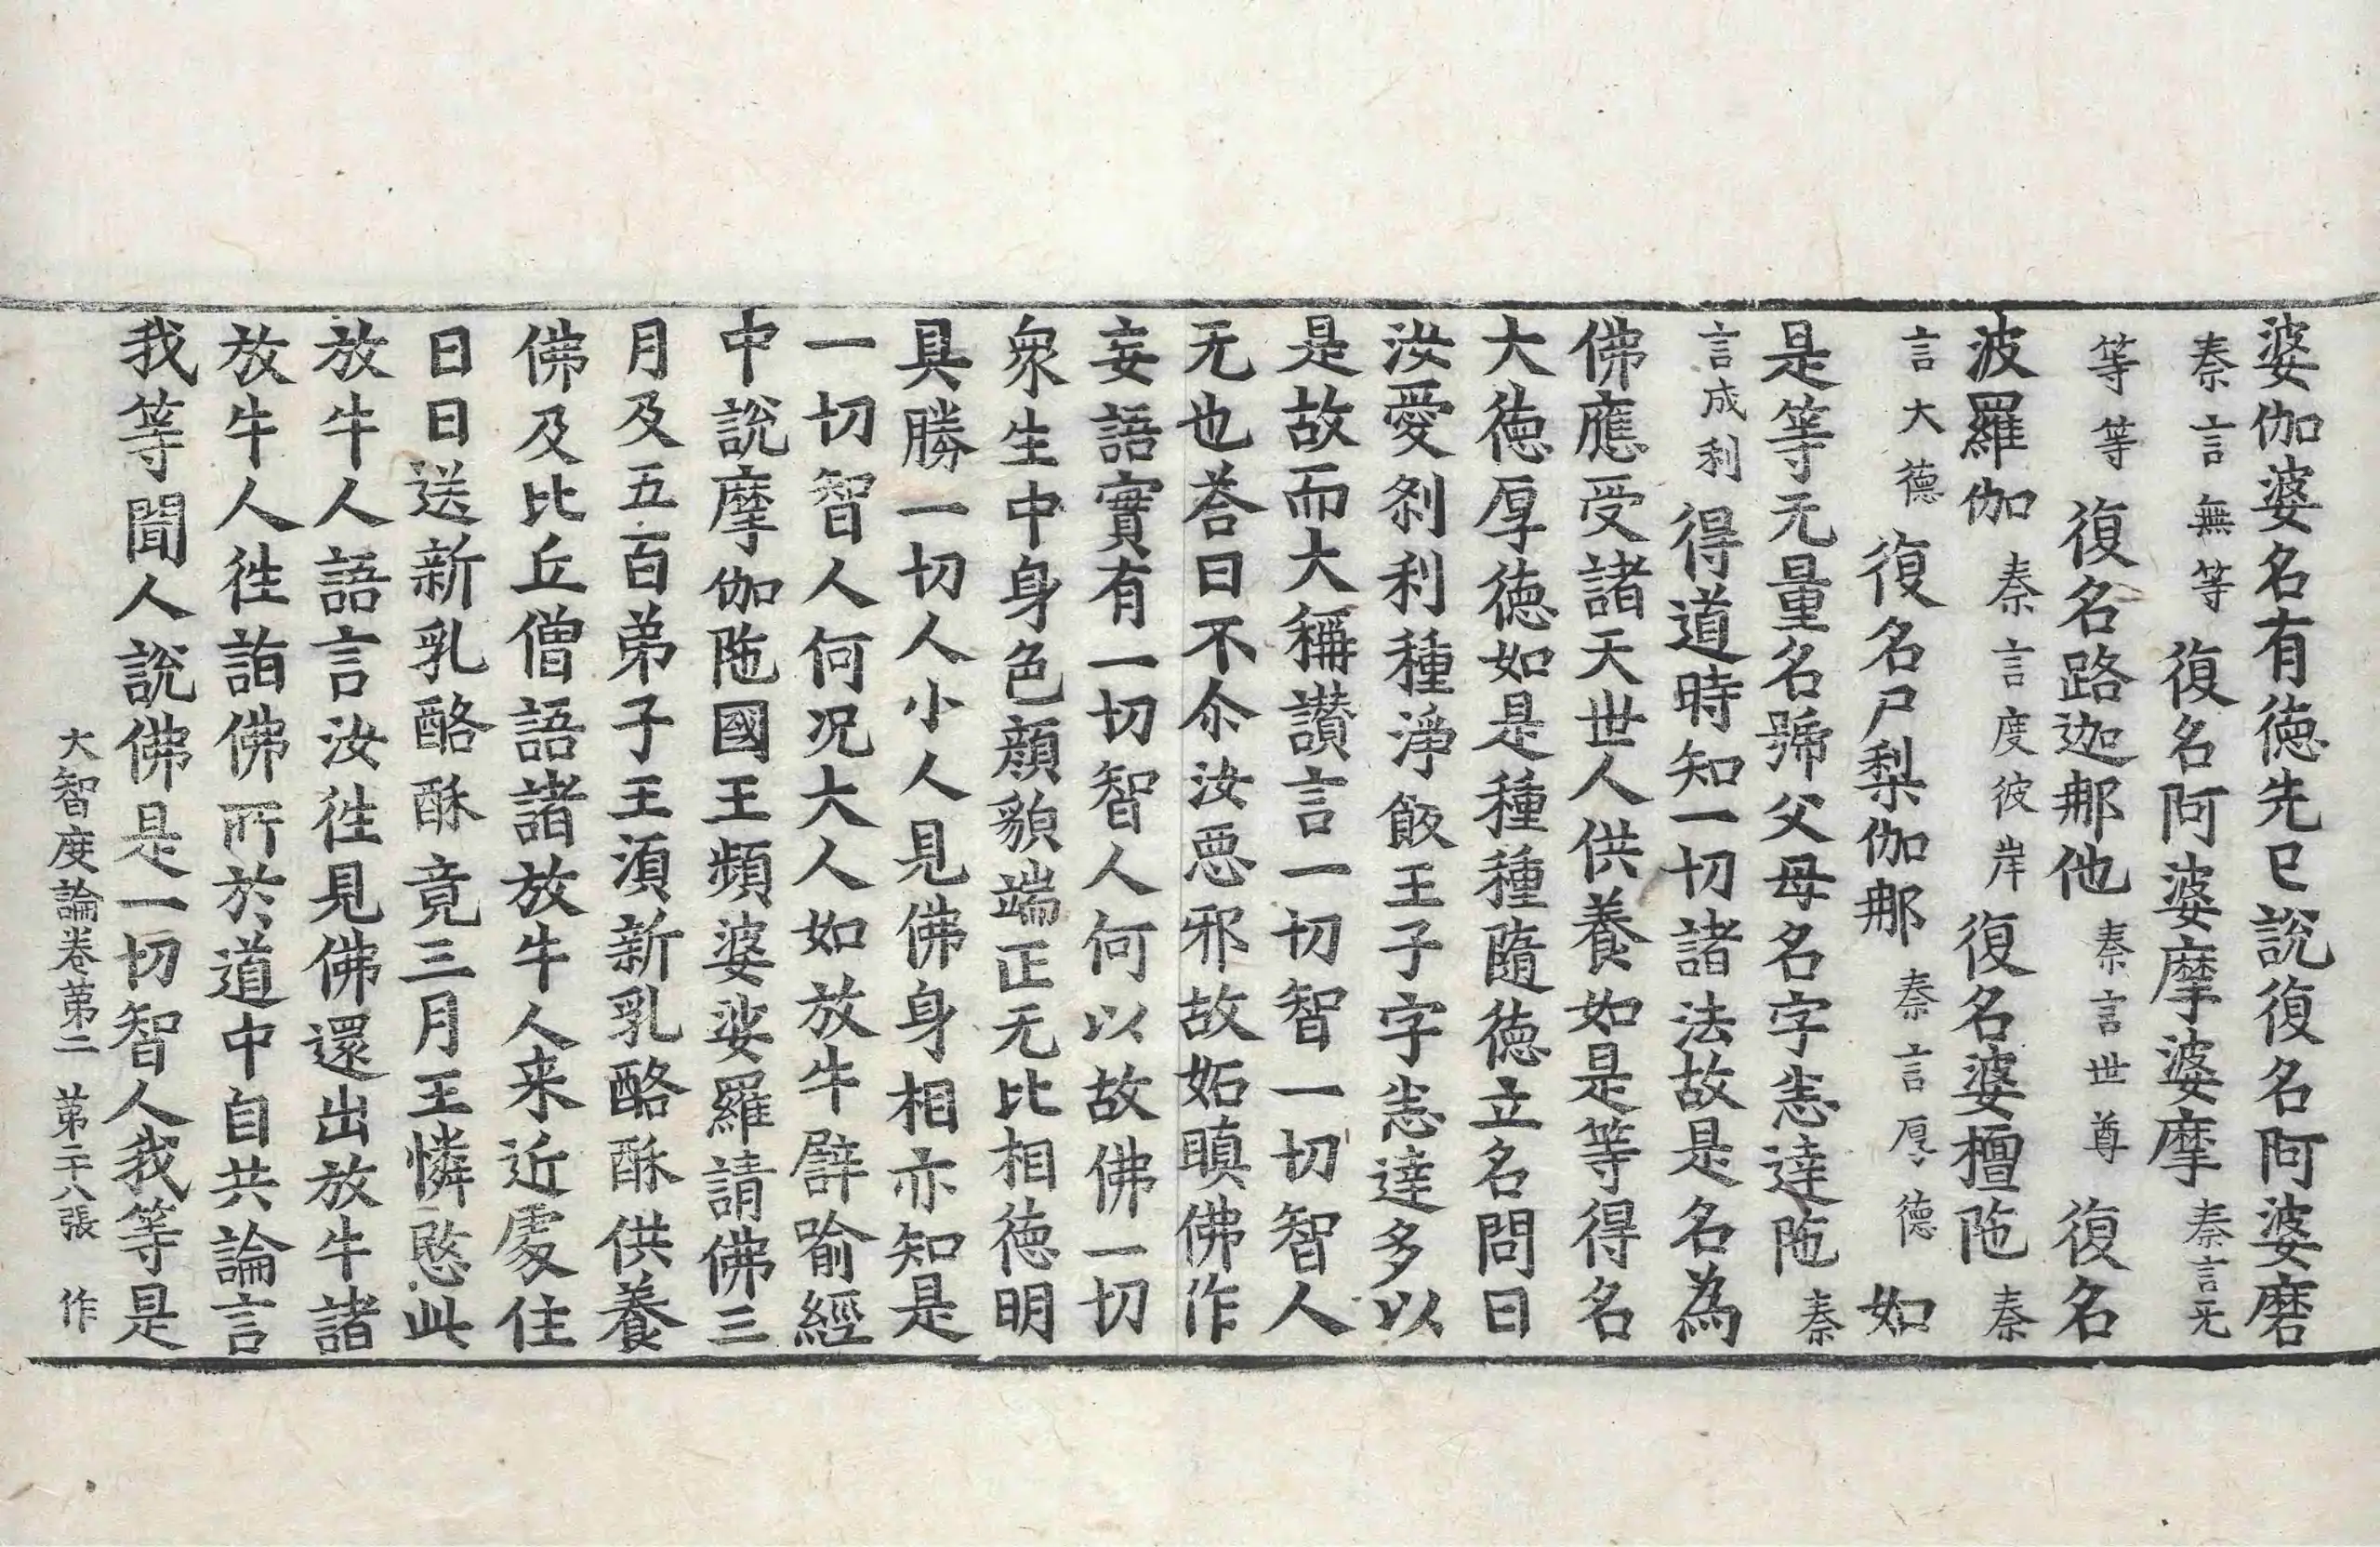 婆伽婆名有德先已說復名阿婆磨
秦言無等復名阿婆摩婆摩秦言无
等等復名路迦那他秦言世尊復名
波羅伽秦言度彼岸復名婆檀陁秦
言大德復名尸梨伽那秦言厚德如
是等无量名號父母名字悉達陁秦
言成利得道時知一切諸法故是名為
佛應受諸天世人供養如是等得名
大德厚德如是種種隨德立名問曰
汝愛刹利種淨飯王子字悉達多以
是故而大稱讚言一切智一切智人
无也荅曰不尒汝惡邪故妬瞋佛作
妄語實有一切智人何以故佛一切
衆生中身色顔貌端正无比相德明
具勝一切人小人見佛身相亦知是
一切智人何况大人如放牛譬喻經
中說摩伽陁國王頻婆娑羅請佛三
月及五百弟子王湏新乳酪酥供養
佛及比丘僧語諸放牛人来近處住
日日送新乳酪酥竟三月王憐愍此
放牛人語言汝徃見佛還出放牛諸
放牛人徃詣佛所於道中自共論言
我等聞人說佛是一切智人我等是
大智度論卷第二 第二十八張 作